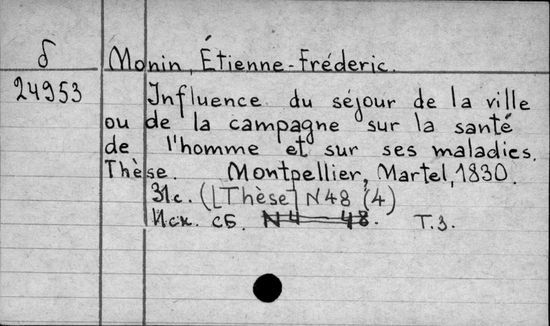 δ Monin, Étienne-Fréderic.
24953 Influence du séjour de la ville
ou de la campagne sur la santé
de l'homme et sur ses maladies.
Thèse. Montpellier, Martel, 1830.
31с. ([Thèse] N48 (4)
Иск. сб. N4 48. Т.3.